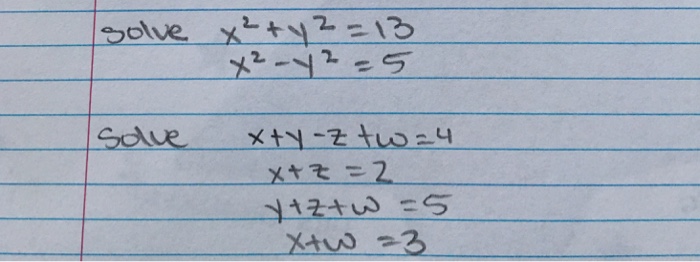 solve x²+y²=13
x²-y²=5
Solve x+y-z+w=4
x+z=2
y+z+w=5
x+w=3